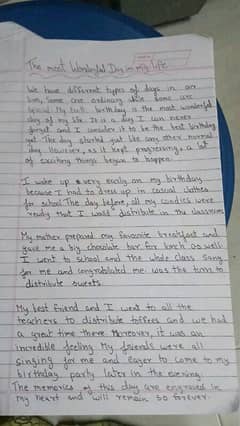 The most Wonderful Day in my life
We have different types of days in our
lives, Some are ordinary while some are
special. My birthday is the most wonderful
day of my life. It is a day I can never
forget and I consider it to be the best birthday
yet. The day started just like any other normal
day, however, as it kept progressing, a lot
of exciting things began to happen.
I woke up very early on my birthday
because I had to dress up in casual clothes
for school. The day before, all my candies were
ready that I would distribute in the classroom
My mother prepared my favourite breakfast and
gave me a big chocolate bar for lunch as well.
I went to school and the whole class sang
for me and congratulated me. was the turns to
distribute sweets.
My best friend and I went to all the
teachers to distribute toffees and we had
a great time there Moreover, it was an
incredible feeling My friends were all
singing for me and eager to come to my
birthday party later in the evening.
The memories of this day are engraved in
my heart and will remain so forever.